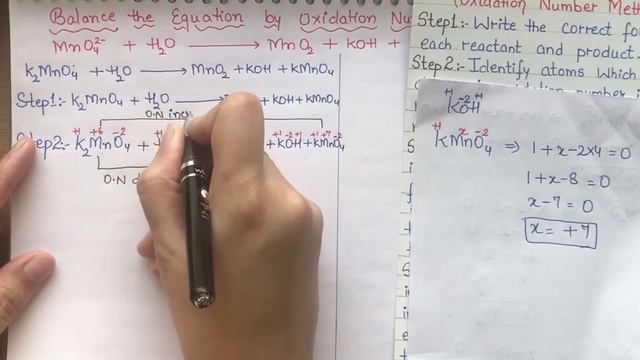 Balance the Equation by Oxidation Nu
MnO₄²⁻ + H₂O ⟶ MnO₂ + KOH +
K₂MnO₄ + H₂O ⟶ MnO₂ + KOH + KMnO₄
Step1:- K₂MnO₄ + H₂O ⟶ + KOH + KMnO₄
O.N inc
+1 +6 -2 +1 +1 -2 +1 +1 +7 -2
Step2:- K₂MnO₄ + + KOH + KMnO₄
O.N d
(Oxidation Number Meth
Step1:- Write the correct fo
each reactant and product.
Step2:- Identify atoms which
+1 -2 +1
KOH
+1 x -2
KMnO₄ ⇒ 1+x-2x4=0
1+x-8=0
x-7=0
x=+7